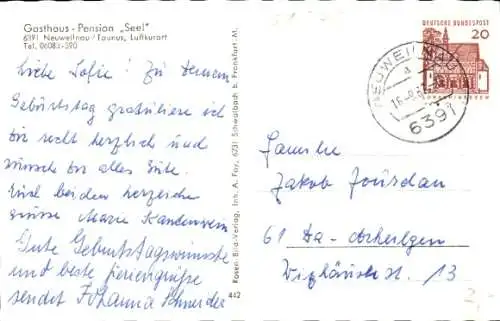 Gasthaus - Pension „Seel"
6391 Neuweilnau / Taunus, Luftkurort
Tel. 06083-590
Liebe Sofie! Zu deinem
Geburtstag gratuliere ich
dir recht herzlich und
wünsche dir alles Gute.
Euch beiden herzliche
Grüsse Marie
Gute Geburtstagswünsche
und beste Feriengrüße
sendet Johanna Schneider
Rosen-Bild-Verlag, Inh. A. Fay, 6231 Schwalbach b. Frankfurt M.
442
DEUTSCHE BUNDESPOST
20
NEUWEILNAU
a
6391
Familie
Jakob Jourdan
61 Da-Arheilgen
13